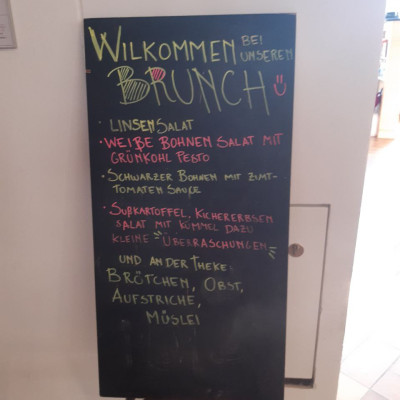 WILKOMMEN BEI
UNSEREN
BRUNCH
· LINSENSALAT
· WEIßE BOHNEN SALAT MIT
GRÜNKOHL PESTO
· SCHWARZER BOHNEN MIT ZIMT-
TOMATEN SAUßE
· SUßKARTOFFEL, KICHERERBSEN
SALAT MIT KÜMMEL DAZU
KLEINE ÜBERRASCHUNGEN
UND AN DER THEKE:
BRÖTCHEN, OBST,
AUFSTRICHE,
MÜSLEI